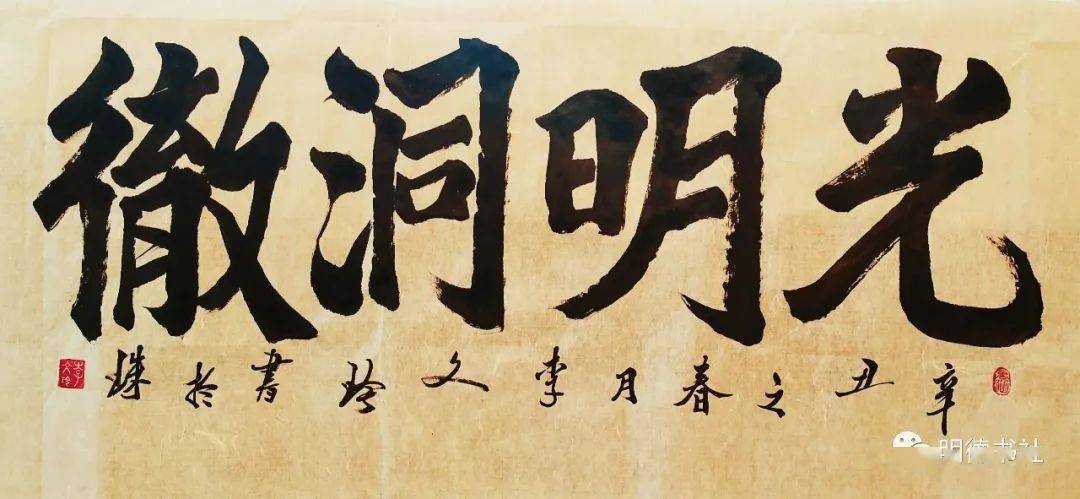 光明洞徹
辛丑之春月李文玲書於珠
李文玲
明德书社